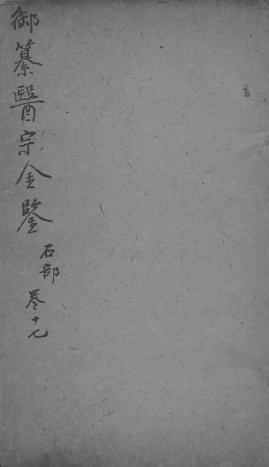 御纂醫宗金鑒
石部
卷十七